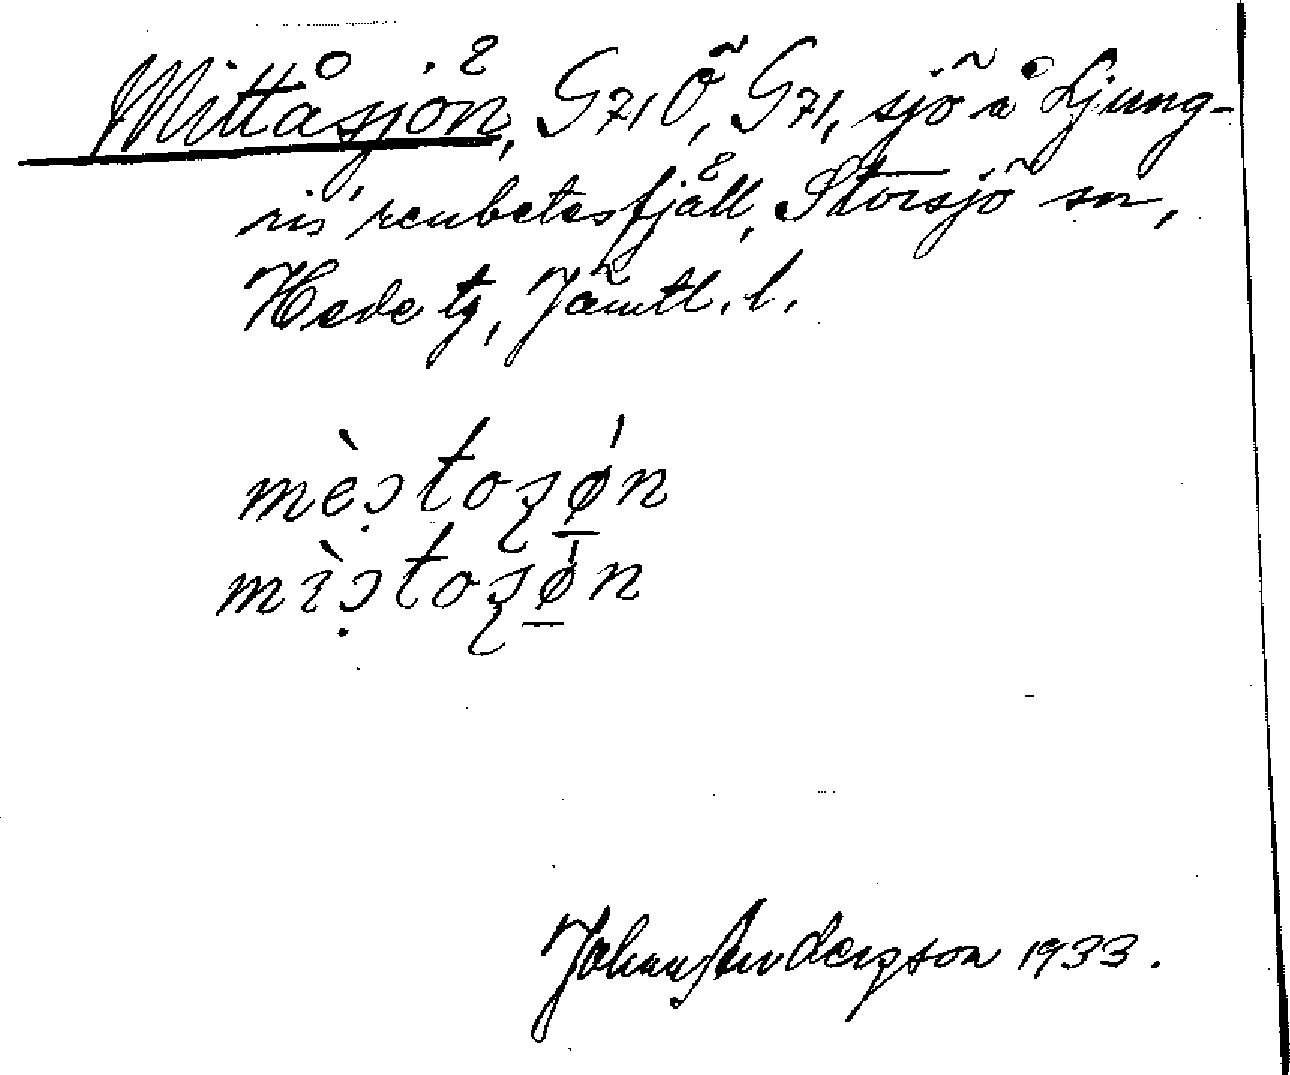 Mittåsjön, G71Ö, G71, sjö å Ljung-
ris' renbetesfjäll, Storsjö sn,
Hede tg, Jämtl. l.
mèɔ̣toʂǿ̱n
mìɔ̣toʂǿ̱n
Johan Andersson 1933.